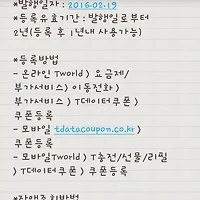 *발행일자 : 2016-02-19
*등록유효기간 : 발행일로부터
2년(등록 후 1년내 사용가능)
*등록방법
- 온라인 Tworld 〉 요금제/
부가서비스 〉 이동전화 〉
부가서비스 〉 T데이터쿠폰 〉
쿠폰등록
- 모바일 tdatacoupon.co.kr 〉
쿠폰등록
- 모바일Tworld 〉 T충전/선물/리필
〉 T데이터쿠폰 〉 쿠폰등록